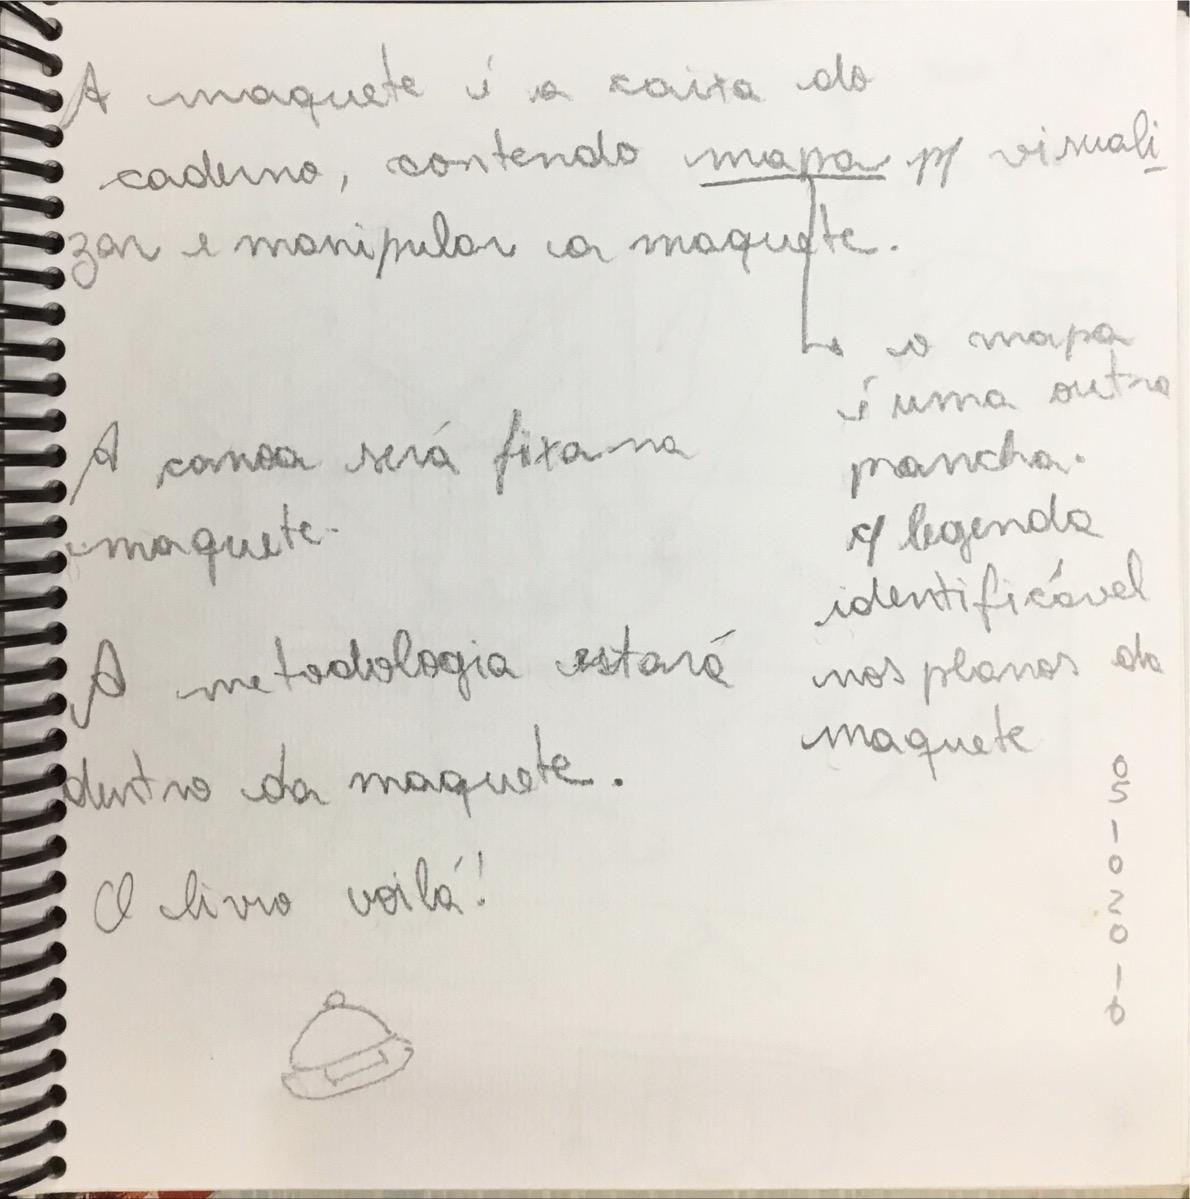 A maquete é a caixa do
caderno, contendo mapa p/ visuali
zar e manipular a maquete.
o mapa
é uma outra
prancha.
c/ legenda
identificável
nos planos da
maquete
A canoa será fixa na
maquete.
A metodologia estará
dentro da maquete.
O livro voilá!
0
5
1
0
2
0
1
6